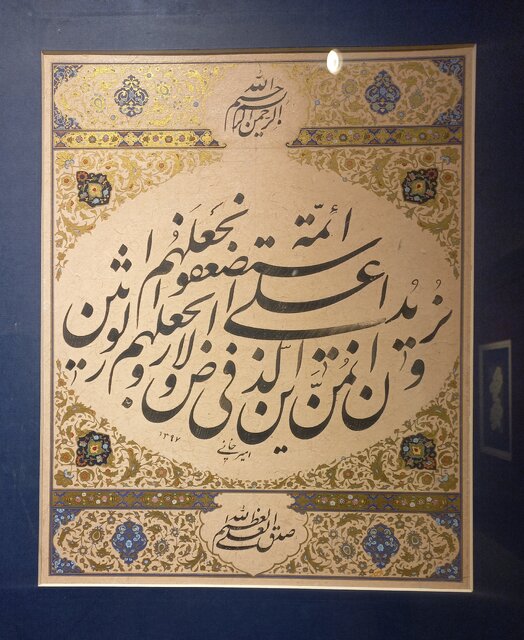 بسم الله الرحمن الرحیم
و نُرِیدُ ان نمُنَّ علی الذین استضعفوا فی الارض و نجعلهم ائمّة و نجعلهم الوارثین
امیرخانی ۱۳۹۷
صدق الله العلی العظیم